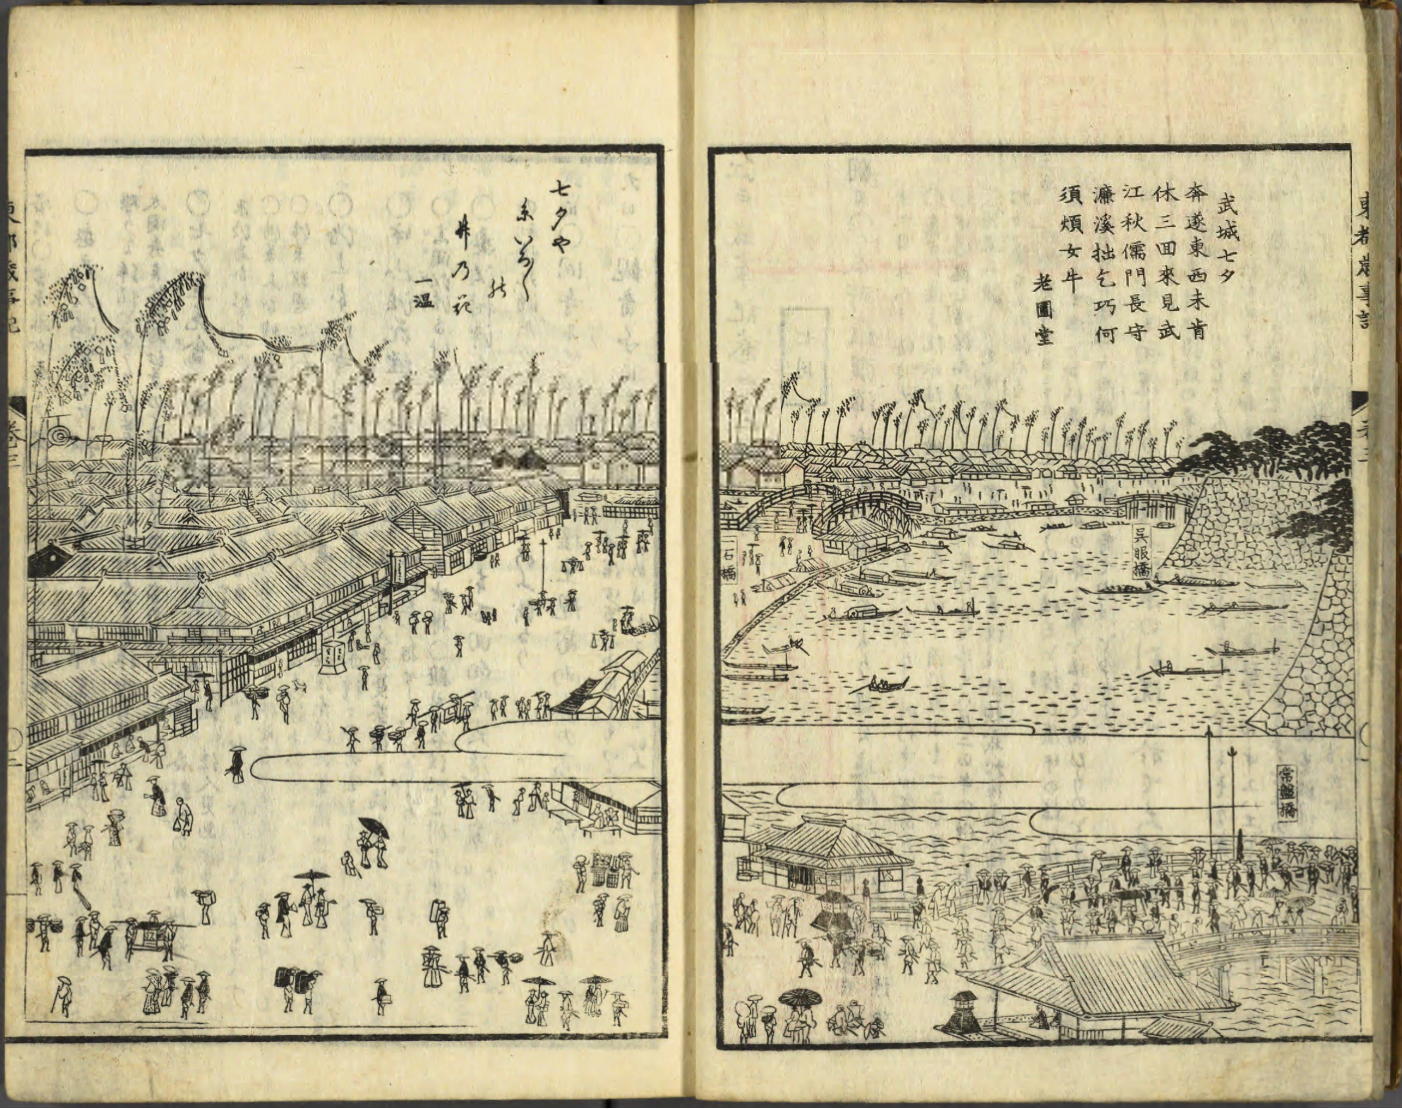 東都歳事記
武城七夕
奔遂東西未肯
休三回來見武
江秋儒門長守
濂溪拙乞巧何
須煩女牛
老圃堂
呉服橋
石橋
常盤橋
七夕や
井乃
一温
東都歳事記
巻之三